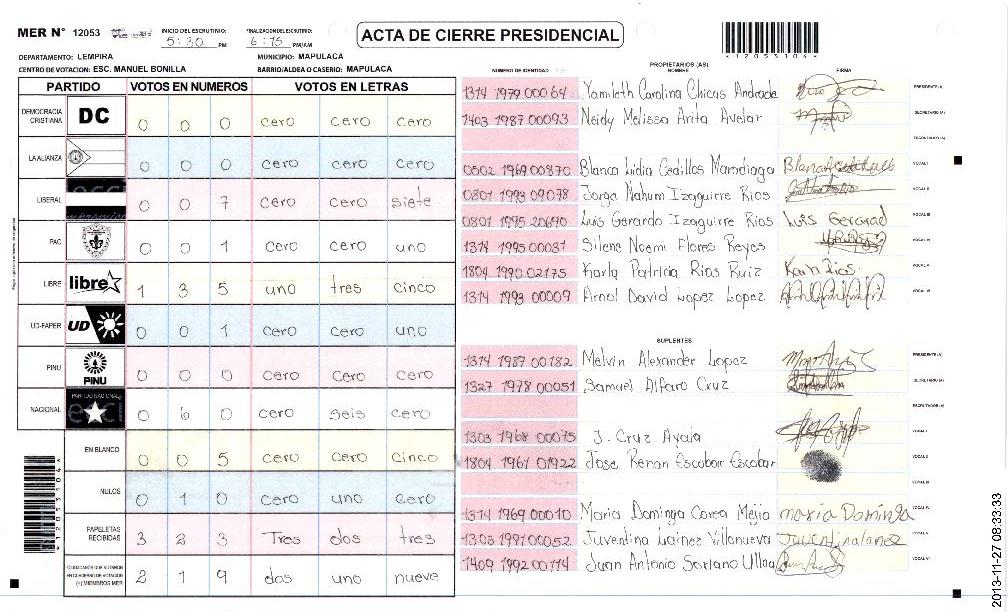 MER N° 12053
INICIO DEL ESCRUTINIO: 5:30 PM
FINALIZACION DEL ESCRUTINIO: 6:15 PM/AM
ACTA DE CIERRE PRESIDENCIAL
*12053104*
DEPARTAMENTO: LEMPIRA
MUNICIPIO: MAPULACA
CENTRO DE VOTACION: ESC. MANUEL BONILLA
BARRIO/ALDEA O CASERIO: MAPULACA
PARTIDO VOTOS EN NUMEROS VOTOS EN LETRAS
DEMOCRACIA CRISTIANA DC 0 0 0 cero cero cero
LA ALIANZA 0 0 0 cero cero cero
LIBERAL 0 0 7 cero cero siete
PAC 0 0 1 cero cero uno
LIBRE libre 1 3 5 uno tres cinco
UD-FAPER UD 0 0 1 cero cero uno
PINU PINU 0 0 0 cero cero cero
NACIONAL PARTIDO NACIONAL 0 6 0 cero seis cero
EN BLANCO 0 0 5 cero cero cinco
NULOS 0 1 0 cero uno cero
PAPELETAS RECIBIDAS 3 2 3 Tres dos tres
CIUDADANOS QUE VOTARON EN CUADERNO DE VOTACION (+) MIEMBROS MER 2 1 9 dos uno nueve
*12053104*
PROPIETARIOS (AS)
NUMERO DE IDENTIDAD NOMBRE FIRMA
1314 1979 00064 Yamileth Carolina Chicas Andrade PRESIDENTE (A)
1403 1987 00093 Neidy Melissa Arita Avelar SECRETARIO (A)
ESCRUTADOR (A)
0502 1969 00870 Blanca Lidia Cedillos Mamdiaga Blanca VOCAL I
0801 1993 09078 Jorge Nahum Izaguirre Rios VOCAL II
0801 1995 20690 Luis Gerardo Izaguirre Rios Luis Gerarad VOCAL III
1314 1995 00031 Silene Noemi Flores Reyes VOCAL IV
1804 1990 02175 Karla Patricia Rios Ruiz Karla Rios. VOCAL V
1314 1993 00009 Arnol David Lopez Lopez VOCAL VI
SUPLENTES
1314 1987 00182 Melvin Alexander Lopez PRESIDENTE (A)
1327 1978 00051 Samuel Alfaro Cruz SECRETARIO (A)
ESCRUTADOR (A)
1303 1968 00075 J. Cruz Ayala VOCAL I
1804 1961 01922 Jose Renan Escobar Escobar VOCAL II
VOCAL III
1314 1969 00010 Maria Dominga Corea Mejia maria Dominga VOCAL IV
1303 1991 00052 Juventina Lainez Villanueva Juventinalanez VOCAL V
1409 1992 00114 Juan Antonio Soriano Ulloa VOCAL VI
2013-11-27 08:33:33